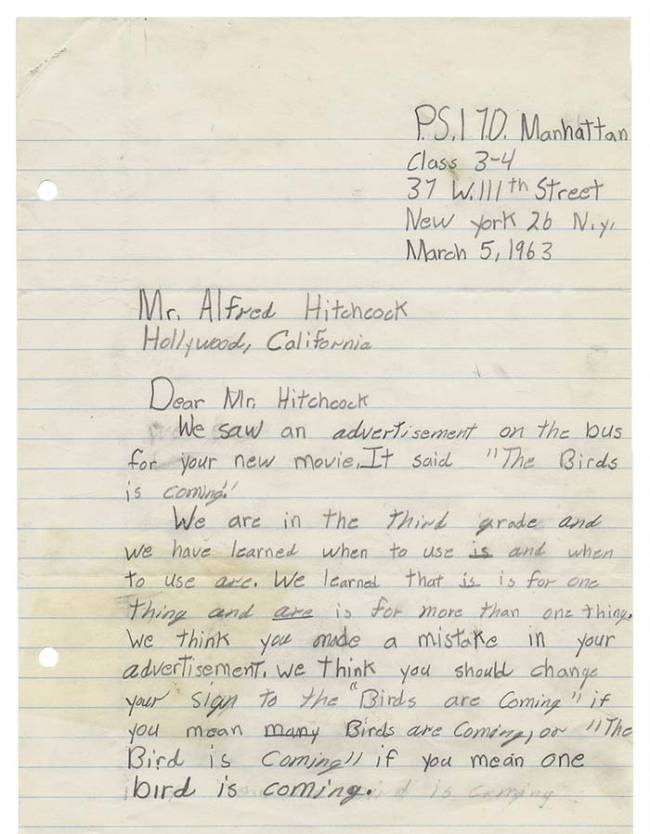 P.S. 170. Manhattan
Class 3-4
37 W. 111th Street
New York 26 N.y.
March 5, 1963
Mr. Alfred Hitchcock
Hollywood, California
Dear Mr. Hitchcock
We saw an advertisement on the bus
for your new movie. It said "The Birds
is coming."
We are in the third grade and
we have learned when to use is and when
to use are. We learned that is is for one
thing and are is for more than one thing.
We think you made a mistake in your
advertisement. We think you should change
your sign to the "Birds are Coming" if
you mean many Birds are Coming, or "The
Bird is Coming" if you mean one
bird is coming.